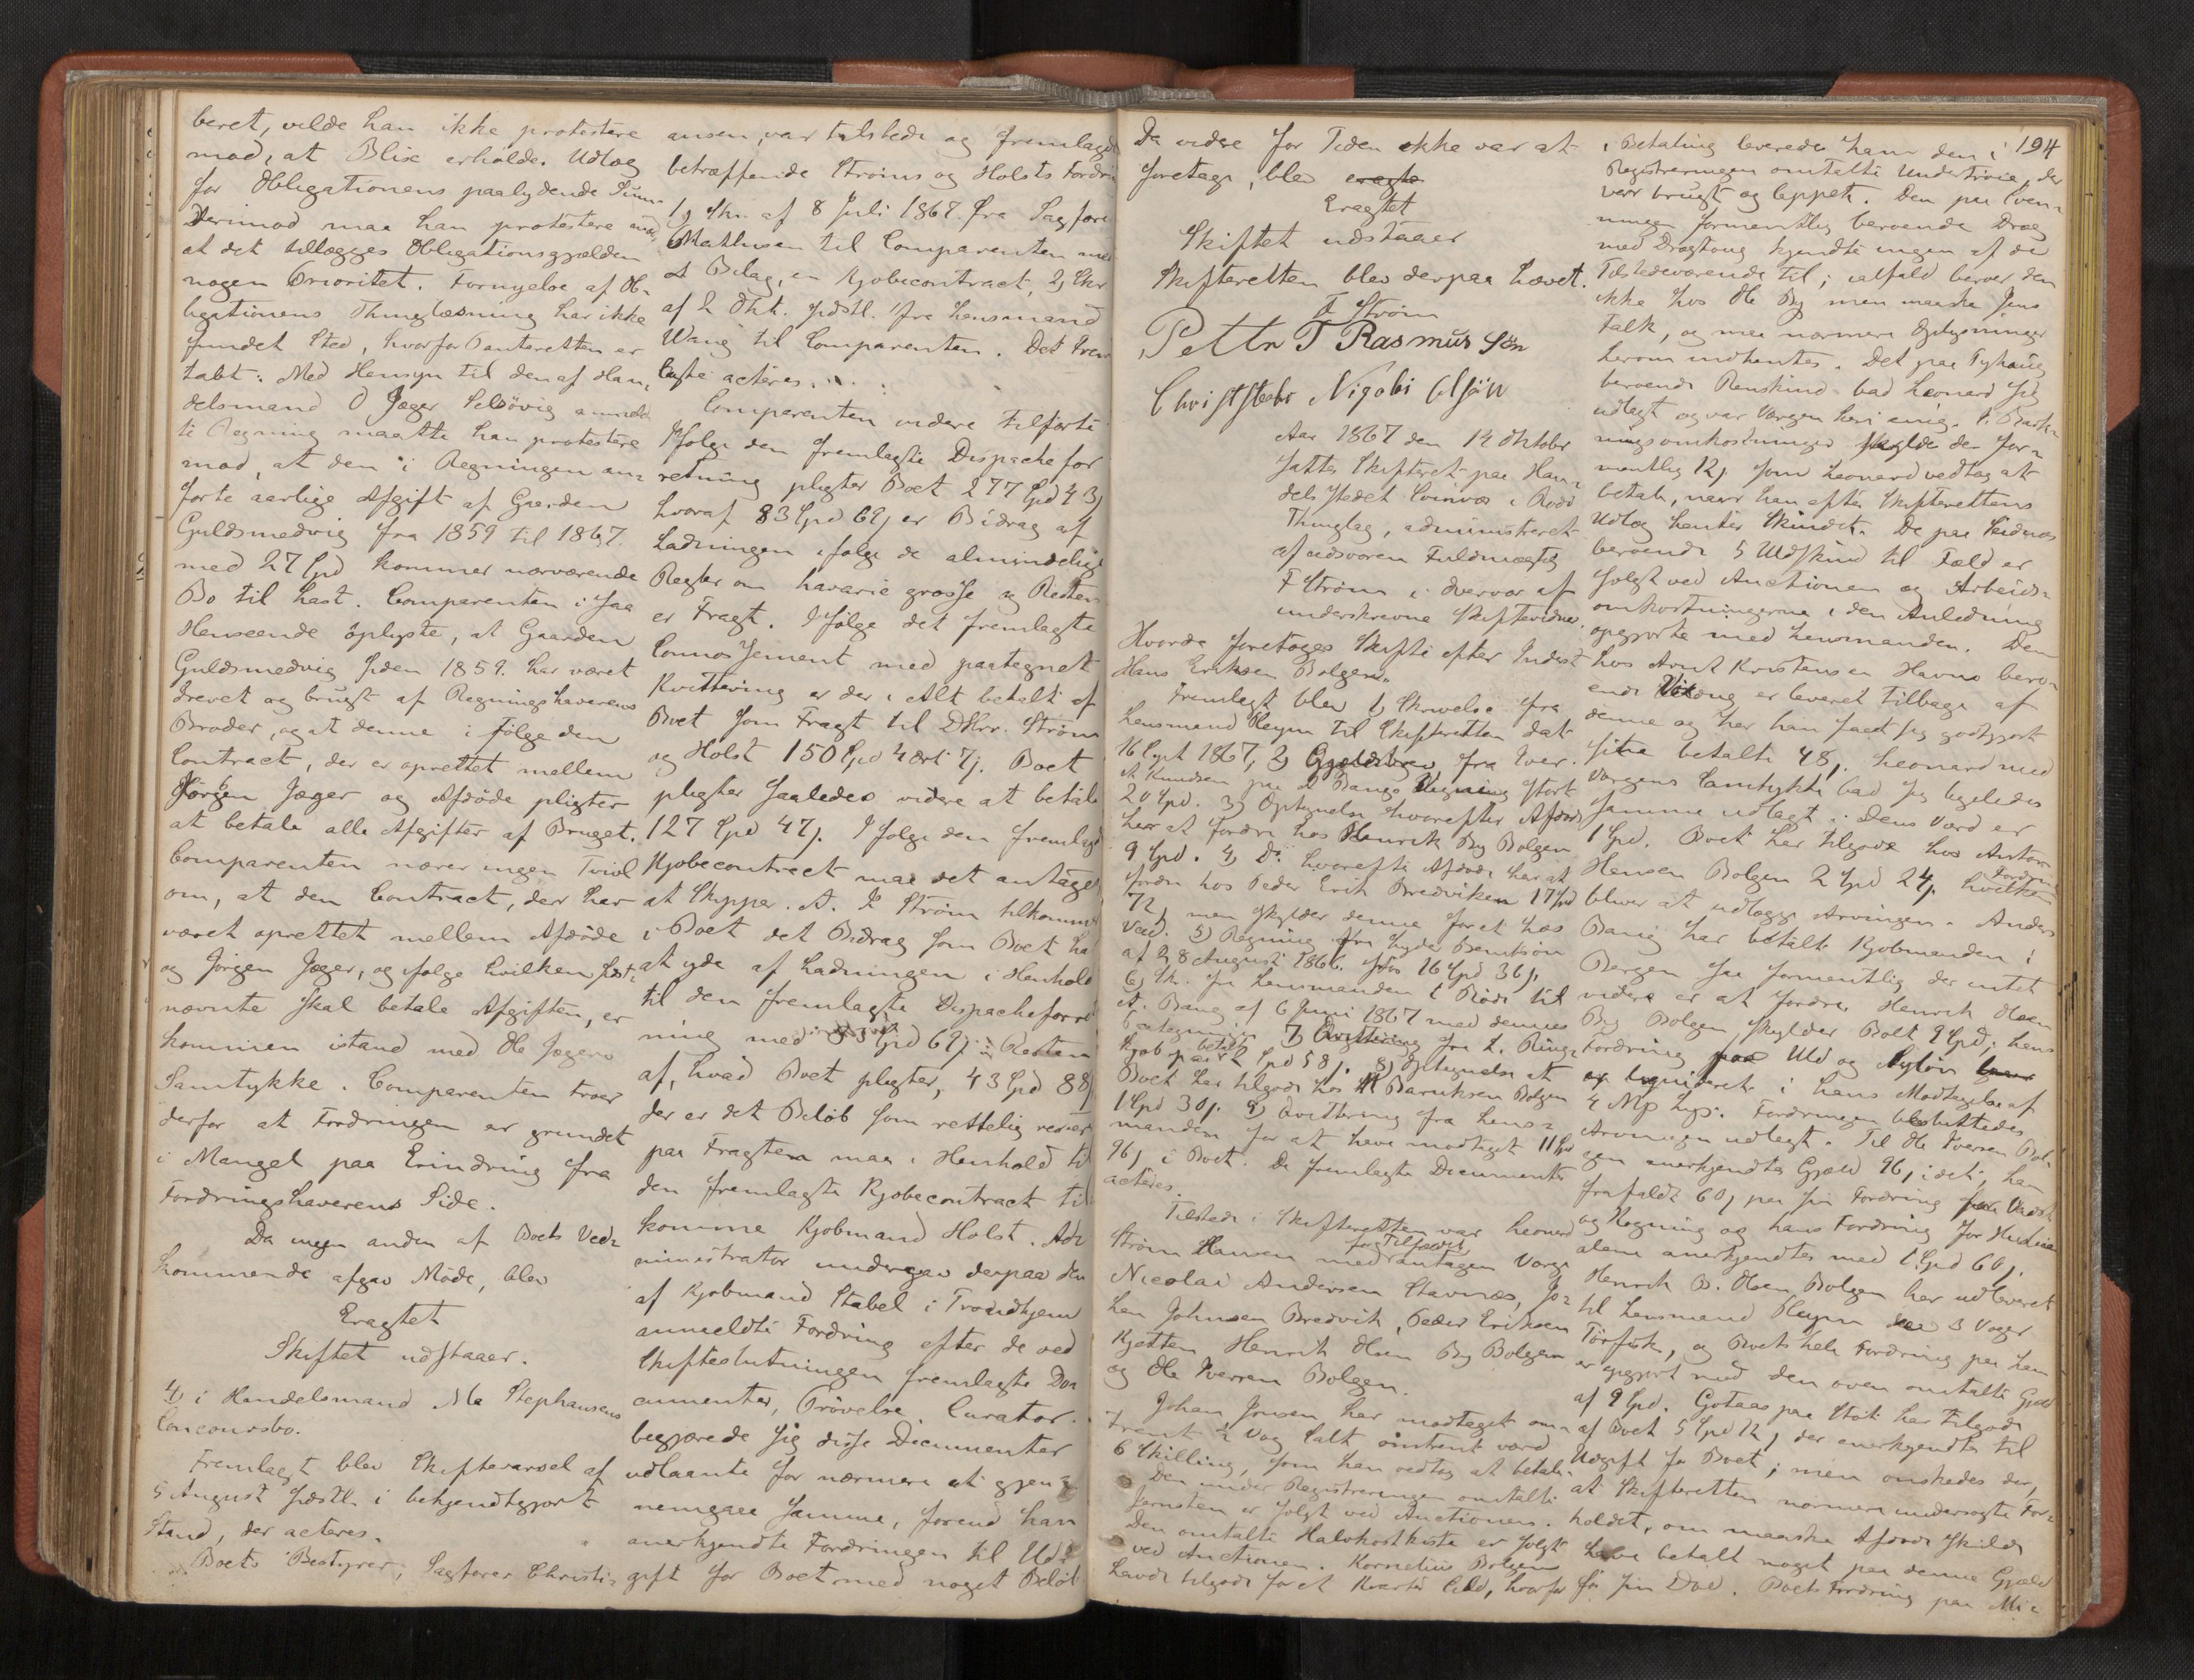 beret, vilde han ikke protestere
mod, at Blix erholder Udlæg
for Obligationens paalydende Sum.
Derimod maa han protestere mod,
at det tillægges Obligationsgjælden
nogen Prioritet. Fornyelse af Ob-
ligationens Thinglæsning har ikke
fundet Sted, hvorfor Panteretten er
tabt. Med Hensyn til den af Han-
delsmand O Jæger Selsövig anmeld-
te Regning maatte han protestere
mod, at den i Regningen an-
förte aarlige Afgift af Gaarden
Guldsmedvig fra 1859 til 1867.
med 27 Spd kommer nærværende
Bo til Last. Comparenten i saa
Henseende oplyste, at Gaarden
Guldsmedvig siden 1859. har været
drevet og brugt af Regningshaverens
Broder, og at denne i fölge den
Contract, der er oprettet mellem
Jörgen Jæger og Afdöde pligter
at betale alle Afgifter af Bruget.
Comparenten nærer ingen Tvivl
om, at den Contract, der har
været oprettet mellem Afdöde
og Jörgen Jæger, og ifölge hvilken sidst-
nævnte skal betale Afgiften, er
kommen istand med Ole Jægers
Samtykke. Comparenten troer
derfor at Fordringen er grundet
i Mangel paa Erindring fra
Fordringshaverens Side.
Da ingen anden af Boets Ved-
kommende afgav Möde, blev
Eragtet
Skiftet udstaaer.
4) i Handelsmand Stephansens
Concoursbo.
Fremlagt blev Skiftevarsel af
5 August sidstl. i bekjendtgjort
Stand, der acteres.
Boets Bestyrer, Sagförer Christi-
ansen, var tilstede og fremlagde
betræffende Ströms og Holsts Fordring
1) Skr. af 8 Juli 1867. fra Sagförer
Mathisen til Comparenten med
et Bilag, en Kjöbecontract, 2) Skr
af 2 Okt. sidstl. fra Lensmand
Wang til Comparenten. Det frem-
lagte acteres.
Comparenten videre tilförte
Ifölge den fremlagte Dispacheför-
retning pligter Boet 277 Spd 43
hvoraf 83 Spd 69 er Bidrag af
Ladningen ifölge de almindelige
Regler om havarie grosse og Resten
er Fragt. Ifölge det fremlagte
Connossement med paategnet
Kvittering er der i Alt betalt af
Boet som Fragt til Strøm
og Holst 150 Spd 4 ort 7. Boet
pligter saaledes videre at betale
127 Spd 47. I fölge den fremlagte
Kjöbecontract maa det antages
at Skipper A. Ström tilkommer
i Boet det Bidrag som Boet har
at yde af Ladningen i Henhold
til den fremlagte Dispacheforret-
ning med 83 Spd 69. Resten
af, hvad Boet pligter, 43 Spd 88
der er det Belöb som rettelig resterer
paa Fragten maa i Henhold til
den fremlagte Kjöbecontract til-
komme Kjöbmand Holst. Ad-
ministrator undergav derpaa den
af Kjöbmand Stabel i Trondhjem
anmeldte Fordring efter de ved
Skifteslutningen fremlagte Do-
cumenter, Prövelse. Curator
begjærede sig disse Documenter
udlaante for nærmere at gjen-
nemgaae samme, forend han
anerkjendte Fordringen til Ud-
gift for Boet med noget Belöb
Da videre for Tiden ikke var at
foretage, blev eragte
Eragtet
Skiftet udstaaer
Skifteretten blev derpaa hævet.
F Ström
Petter T Rasmussön
Christ Nigolai Olsön
Aar 1867 den 14 Oktober
sattes Skifteret paa Han-
delsstedet i Rödö
Thinglag, administreret
af edsvoren Fuldmægtig
F Ström i Overvær af
underskrevne Skiftevidner.
Hvorda foretoges Skifte efter Inderst
Hans Eriksen Bolgen.
Fremlagt blev 1) Skrivelse fra
Lensmand Heyn til Skifteretten dat
16 Sept 1867, 2) Gjældsbrev fra Iver
Knudsen paa Bangs Regning stort
20 Spd. 3) Optegnelse hvorefter Afdöde
har at fordre hos Henrik By Bolgen
9 Spd. 4) Do. hvorefter Afdöde har at
fordre hos Peder Erik Bredviken 17 Spd
72, men skylder denne for et hos
Ved. 5) Regning fra Lyder Bentsön
af 28 August 1866. stor 16 Spd 36,
6) Skr. fra Lensmanden i Rödö til
A. Bang af 6 Juni 1867 med dennes
Paategning 7) Qvittering fra L. Ring-
betalt 2 Spd 58. 8) Optegnelse at
Boet har tilgode hos Baruksen Bolgen
1 Spd 30. 9) Qvittering fra Lens-
manden for at have modtaget 11 Spd
96 i Boet. De fremlagte Documenter
acteres.
Tilstede i Skifteretten var Leonard
Ström Hansen med for Tilfældet antagen Verge
Nicolai Andersen Stavnæs, Jo-
han Johnsen Bredvik, Peder Eriksen
Kjetten Henrik Olsen By Bolgen
og Ole Iversen Bolgen.
Johan Jonsen har modtaget om-
trent ½ Vog Salt omtrent værd
6 Skilling, som han vedtog at betale.
Den under Registreringen omtalte
Jernsten er solgt ved Auctionen.
Den omtalte Halvkortkiste er solgt
ved Auctionen. Kornelius Bolgen
havde tilgode for et Kvarter Sild, hvorfor
194
i Betaling leverede ham den i
Registreringen omtalte Undertröie, der
var brugt og lappet. Den paa Sven-
ningen formentlig beroende Dræg
med Drægtoug kjendte ingen af de
Tilstedeværende til; ialfald beroer den
ikke hos Ole By men maaske Jens
Falk, og maa nærmere Oplysninger
herom indhentes. Det paa Tyshaug
beroende Renskind bad Leonard sig
udlagt og var Vergen heri enig. I Bark-
ningsomkostninger skylde der for-
mentlig 12, som Leonard vedtog at
betale, naar han efter Skifterettens
Udlæg henter Skindet. De paa Seidnæs
beroende 5 Uldskind til Fæld er
solgt ved Auctionen og Arbeids-
omkostningerne i den Anledning
opgjorte med Lensmanden. Den
hos Arnt Kristensen Havnö bero-
ende er leveret tilbage af
denne og har han faaet sig godtgjort
sine betalte 48. Leonard med
Vergens Samtykke bad sig ligeledes
samme udlagt. Dens Værd er
1 Spd. Boet har tilgode hos Anton
Hansen Bolgen 2 Spd 24. hvilken Fordring
bliver at udlægge Arvingen. Anders
Bang har betalt Kjöbmanden i
Bergen saa formentlig der intet
videre er at fordre. Henrik Olsen
By Bolgen skylder Boet 9 Spd; hans
Fordring paa Uld og
er liqvideret i hans Modtagelse af
4 Mp . Fordringen besluttedes
Arvingen udlagt. Til Ole Iversen Bol-
gen anerkjendtes Gjæld 96, idet han
frafaldt 60 paa sin Fordring for Vadsk
og Røgning og hans Fordring for
alene anerkjendtes med 1 Spd 60.
Henrik B. Olsen Bolgen har udleveret
til Lensmand Heyn 3 Voger
Törfisk, og Boets hele Fordring paa ham
er opgjort med den oven omtalte Gjæld
af 9 Spd. Gotaas paa Stöt har tilgode
af Boet 5 Spd 12, der anerkjendtes til
Udgift for Boet; men önskedes der,
at Skifteretten nærmere undersögte For-
holdet, om maaske Afdöde skulde
have betalt noget paa denne Gjæld
för sin Död. Boets Fordring paa Mi-